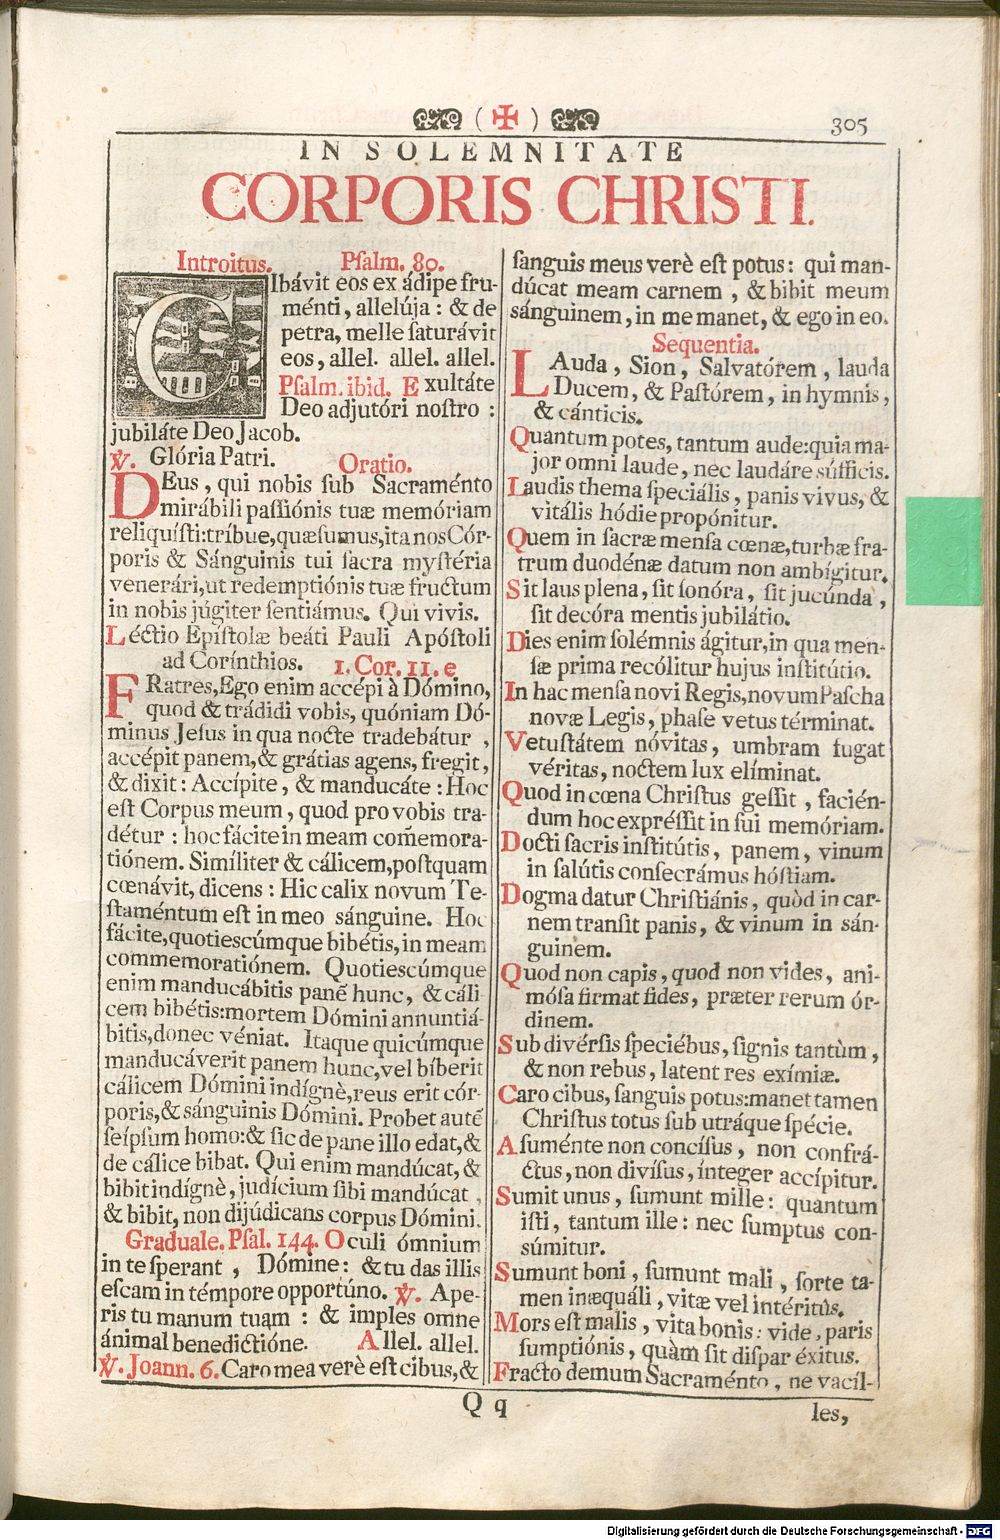 ( ✠ )
305
IN SOLEMNITATE
CORPORIS CHRISTI.
Introitus. Psalm. 80.
CIbávit eos ex ádipe fru-
ménti, allelúja: & de
petra, melle saturávit
eos, allel. allel. allel.
Psalm. ibid. Exultáte
Deo adjutóri nostro:
jubiláte Deo Jacob.
℣. Glória Patri. Oratio.
DEus, qui nobis sub Sacraménto
mirábili passiónis tuæ memóriam
reliquísti:tríbue,quæsumus,ita nos Cór-
poris & Sánguinis tui sacra mystéria
venerári,ut redemptiónis tuæ fructum
in nobis júgiter sentiámus. Qui vivis.
Léctio Epistolæ beáti Pauli Apóstoli
ad Corínthios. 1. Cor. 11. e
FRatres,Ego enim accépi à Dómino,
quod & trádidi vobis, quóniam Dó-
minus Jesus in qua nocte tradebátur,
accépit panem,& grátias agens, fregit,
& dixit: Accípite, & manducáte: Hoc
est Corpus meum, quod pro vobis tra-
détur: hoc fácite in meam com̃emora-
tiónem. Simíliter & cálicem,postquam
cœnávit, dicens: Hic calix novum Te-
staméntum est in meo sánguine. Hoc
fácite,quotiescúmque bibétis,in meam
commemoratiónem. Quotiescúmque
enim manducábitis panẽ hunc, & cáli
cem bibétis:mortem Dómini annuntiá-
bitis,donec véniat. Itaque quicúmque
manducáverit panem hunc,vel bíberit
cálicem Dómini indígnè,reus erit cór-
poris,& sánguinis Dómini. Probet autẽ
seípsum homo:& sic de pane illo edat,&
de cálice bibat. Qui enim mandúcat, &
bibit indígnè, judícium sibi mandúcat,
& bibit, non dijúdicans corpus Dómini.
Graduale. Psal. 144. Oculi ómnium
in te sperant, Dómine: & tu das illis
escam in témpore opportúno. ℣. Ape-
ris tu manum tuam: & imples omne
ánimal benedictióne. Allel. allel.
℣. Joann. 6. Caro mea verè est cibus, &
sanguis meus verè est potus: qui man-
dúcat meam carnem, & bibit meum
sánguinem, in me manet, & ego in eo.
Sequentia.
LAuda, Sion, Salvatórem, lauda
Ducem, & Pastórem, in hymnis,
& cánticis.
Quantum potes, tantum aude:quia ma-
jor omni laude, nec laudáre súfficis.
Laudis thema speciális, panis vivus, &
vitális hódie propónitur.
Quem in sacræ mensa cœnæ,turbæ fra-
trum duodénæ datum non ambígitur.
Sit laus plena, sit sonóra, sit jucúnda,
sit decóra mentis jubilátio.
Dies enim solémnis ágitur,in qua men-
sæ prima recólitur hujus institútio.
In hac mensa novi Regis,novum Pascha
novæ Legis, phase vetus términat.
Vetustátem nóvitas, umbram fugat
véritas, noctem lux elíminat.
Quod in cœna Christus gessit, facién-
dum hoc expréssit in sui memóriam.
Docti sacris institútis, panem, vinum
in salútis consecrámus hóstiam.
Dogma datur Christiánis, quòd in car-
nem transit panis, & vinum in sán-
guinem.
Quod non capis, quod non vides, ani-
mósa firmat fides, præter rerum ór-
dinem.
Sub divérsis speciébus, signis tantùm,
& non rebus, latent res exímiæ.
Caro cibus, sanguis potus:manet tamen
Christus totus sub utráque spécie.
A suménte non concísus, non confrá-
ctus, non divísus, ínteger accípitur.
Sumit unus, sumunt mille: quantum
isti, tantum ille: nec sumptus con-
súmitur.
Sumunt boni, sumunt mali, sorte ta-
men inæquáli, vitæ vel intéritûs.
Mors est malis, vita bonis: vide, paris
sumptiónis, quàm sit dispar éxitus.
Fracto demum Sacraménto, ne vacíl-
Q q
les,
Digitalisierung gefördert durch die Deutsche Forschungsgemeinschaft - DFG